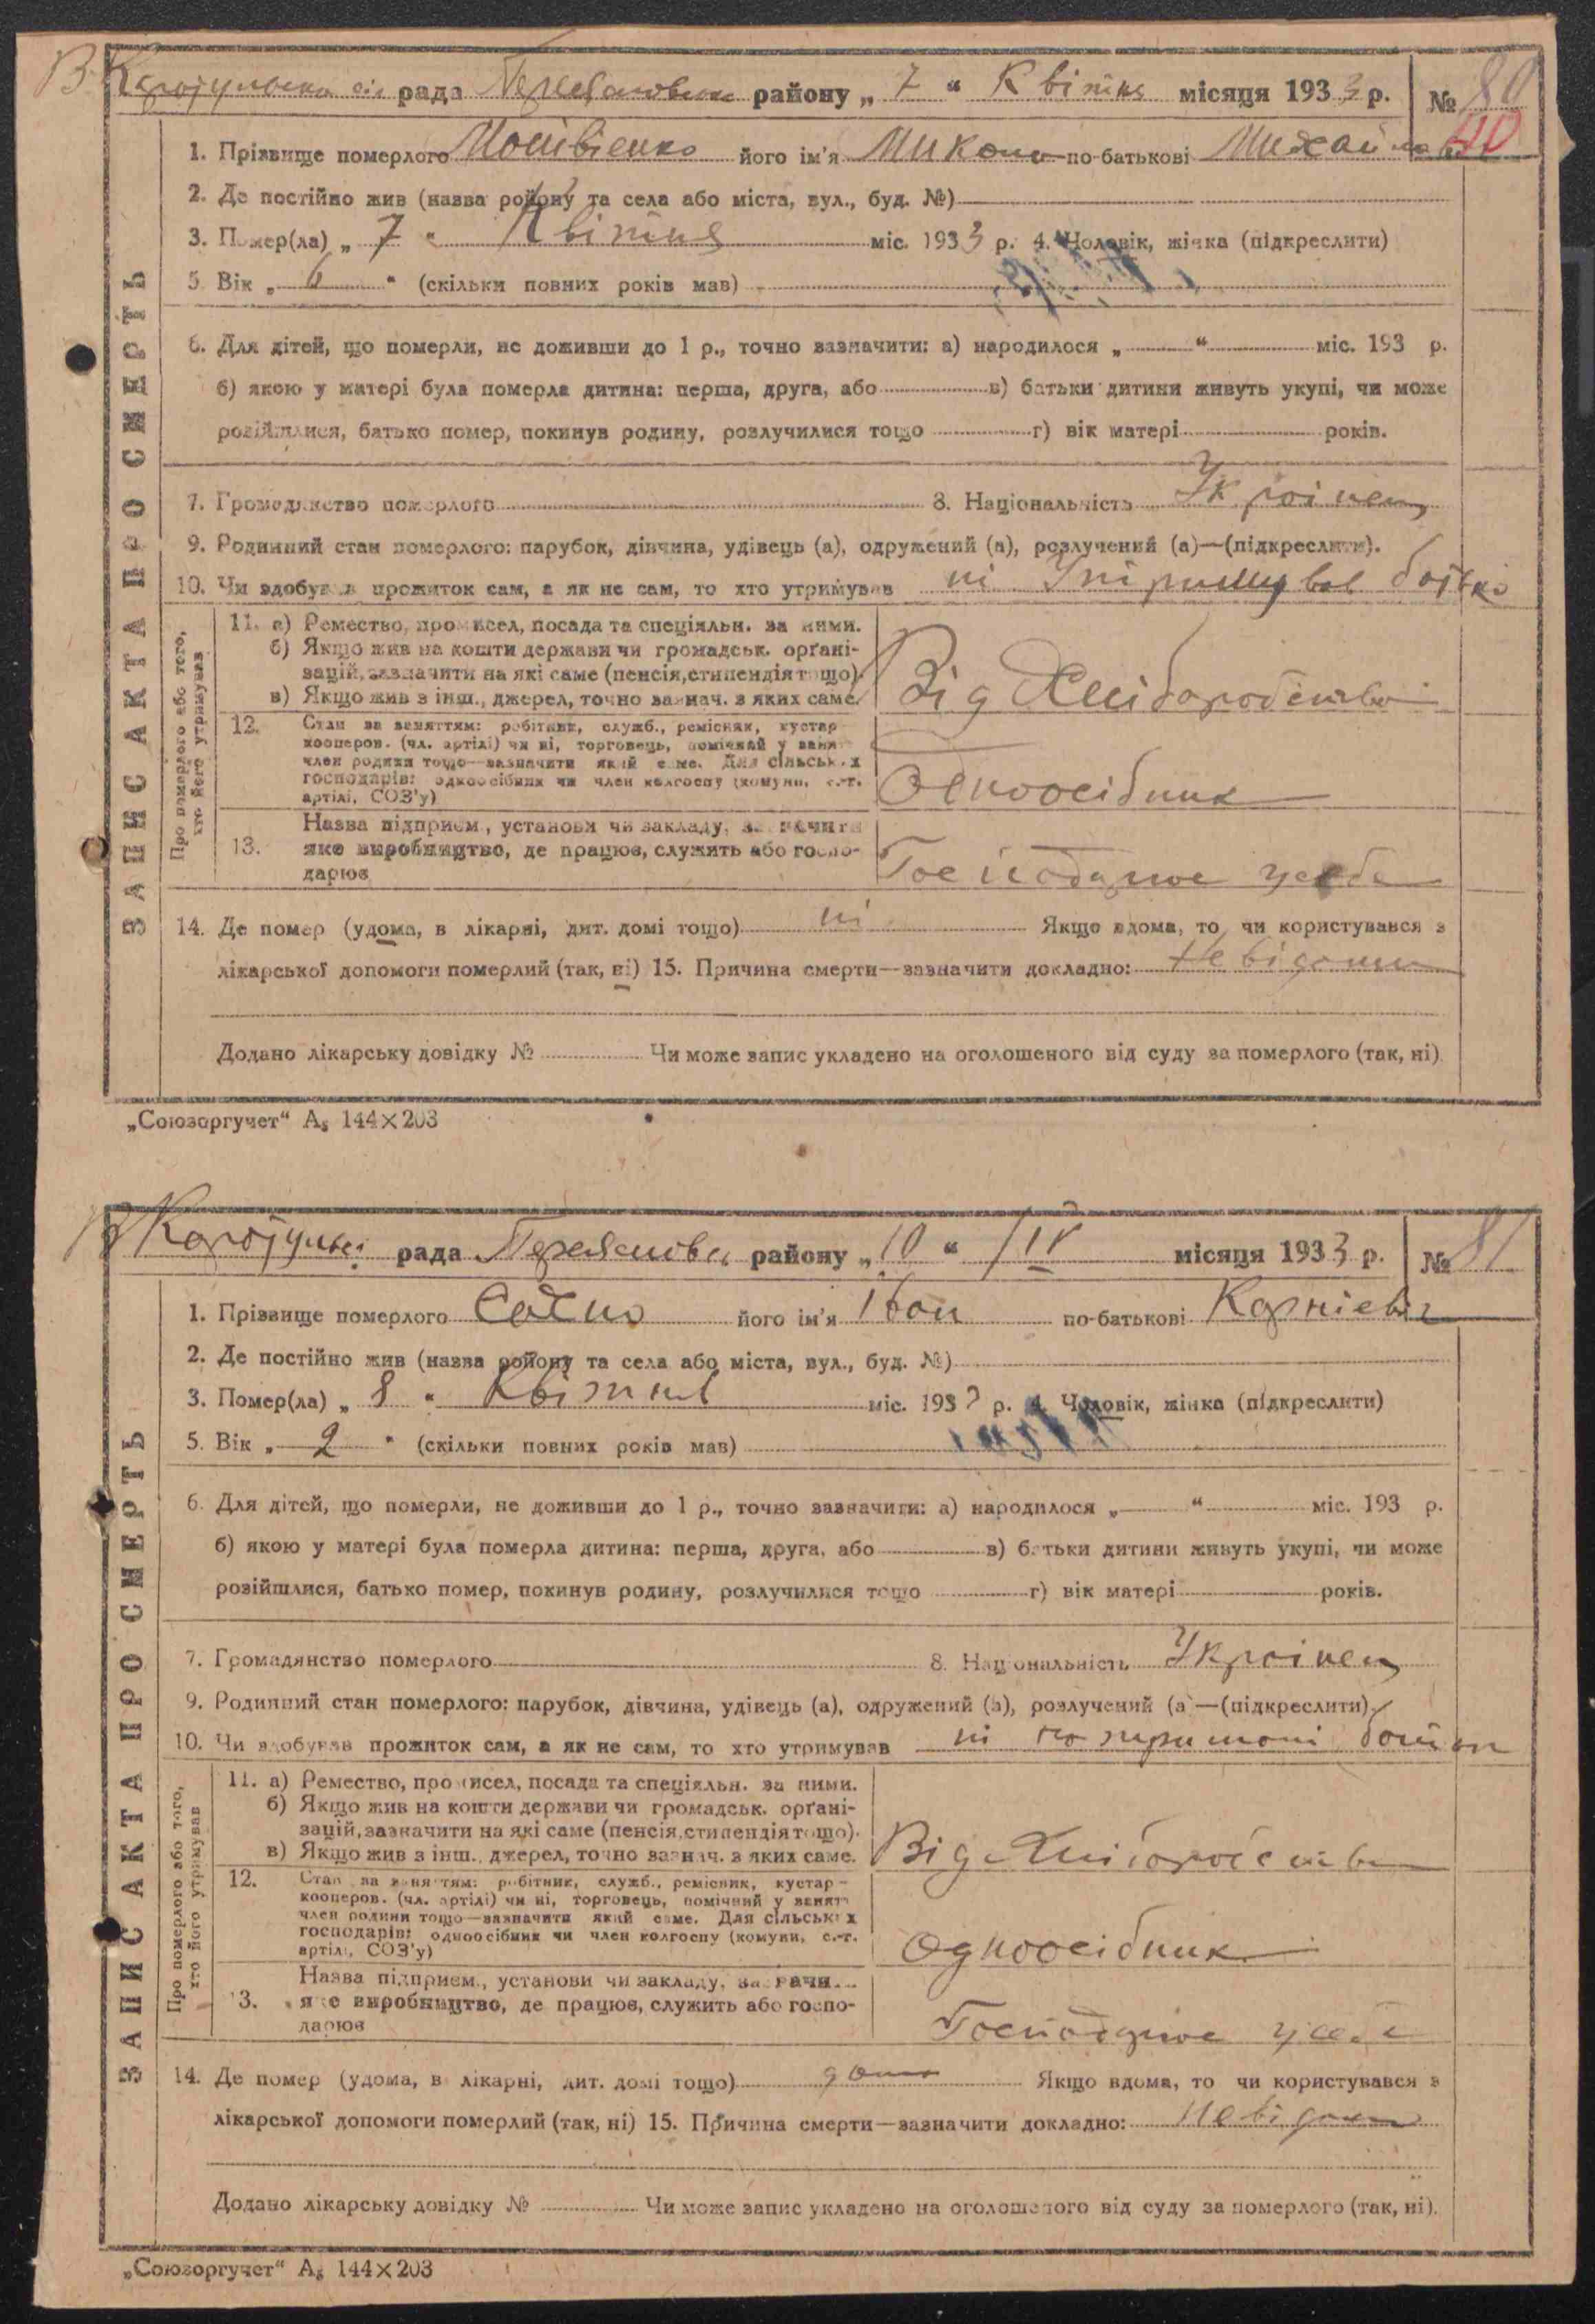 В. Каратульська сіл рада Переяславськ району „ 7 “ Квітня місяця 1933 р. № 80
40
1. Прізвище померлого Мотвієнко його ім'я Микола по-батькові Михайло
2. Де постійно жив (назва району та села або міста, вул., буд. №)
3. Помер(ла) „ 7 “ Квітня міс. 1933 р. 4. Чоловік, жінка (підкреслити)
5. Вік „ 6 “ (скільки повних років мав)
6. Для дітей, що померли, не доживши до 1 р., точно зазначити: а) народилося „ “ міс. 193 р.
б) якою у матері була померла дитина: перша, друга, або в) батьки дитини живуть укупі, чи може
розійшлися, батько помер, покинув родину, розлучилися тощо г) вік матері років.
7. Громадянство померлого 8. Національність Українец
9. Родинний стан померлого: парубок, дівчина, удівець (а), одружений (а), розлучений (а)—(підкреслити).
10. Чи здобував прожиток сам, а як не сам, то хто утримував ні Утримував батько
ЗАПИС АКТА ПРО СМЕРТЬ
Про померлого або того,
хто його утримував
11. а) Ремество, промисел, посада та спеціяльн. за ними.
б) Якщо жив на кошти держави чи громадськ. орґані-
зацій, зазначити на які саме (пенсія, стипендія тощо).
в) Якщо жив з інш., джерел, точно зазнач. з яких саме.
Від Хліборобства
12. Стан за заняттям: робітник, служб., ремісник, кустар
кооперов. (чл. артілі) чи ні, торговець, помічний у занят.
член родини тощо—зазначити який саме. Для сільських
господарів: одноосібник чи член колгоспу (комуни, с.-г.
артілі, СОЗ'у)
Одноосібник
Назва підприєм., установи чи закладу, зазначити
13. яке виробництво, де працює, служить або госпо-
дарює
Господарює у себе
14. Де помер (удома, в лікарні, дит. домі тощо) ні Якщо вдома, то чи користувався з
лікарської допомоги померлий (так, ні) 15. Причина смерти—зазначити докладно: Невідома
Додано лікарську довідку № Чи може запис укладено на оголошеного від суду за померлого (так, ні).
„Союзоргучет“ А₅ 144×203
В Каратульсь рада Переяславсь району „ 10 “ IV місяця 1933 р. № 81
1. Прізвище померлого його ім'я Іван по-батькові Карнієвіч
2. Де постійно жив (назва району та села або міста, вул., буд. №)
3. Помер(ла) „ 8 “ Квітня міс. 1933 р. 4. Чоловік, жінка (підкреслити)
5. Вік „ 2 “ (скільки повних років мав)
6. Для дітей, що померли, не доживши до 1 р., точно зазначити: а) народилося „ “ міс. 193 р.
б) якою у матері була померла дитина: перша, друга, або в) батьки дитини живуть укупі, чи може
розійшлися, батько помер, покинув родину, розлучилися тощо г) вік матері років.
7. Громадянство померлого 8. Національність Українец
9. Родинний стан померлого: парубок, дівчина, удівець (а), одружений (а), розлучений (а)—(підкреслити).
10. Чи здобував прожиток сам, а як не сам, то хто утримував ні
ЗАПИС АКТА ПРО СМЕРТЬ
Про померлого або того,
хто його утримував
11. а) Ремество, промисел, посада та спеціяльн. за ними.
б) Якщо жив на кошти держави чи громадськ. орґані-
зацій, зазначити на які саме (пенсія, стипендія тощо).
в) Якщо жив з інш., джерел, точно зазнач. з яких саме.
Від Хліборобства
12. Стан за заняттям: робітник, служб., ремісник, кустар-
кооперов. (чл. артілі) чи ні, торговець, помічний у занят.
член родини тощо—зазначити який саме. Для сільських
господарів: одноосібник чи член колгоспу (комуни, с.-г.
артілі, СОЗ'у)
Одноосібник
Назва підприєм., установи чи закладу, зазначи
13. яке виробництво, де працює, служить або госпо-
дарює
Господарює у себе
14. Де помер (удома, в лікарні, дит. домі тощо) дома Якщо вдома, то чи користувався з
лікарської допомоги померлий (так, ні) 15. Причина смерти—зазначити докладно: Невідома
Додано лікарську довідку № Чи може запис укладено на оголошеного від суду за померлого (так, ні).
„Союзоргучет“ А₅ 144×203